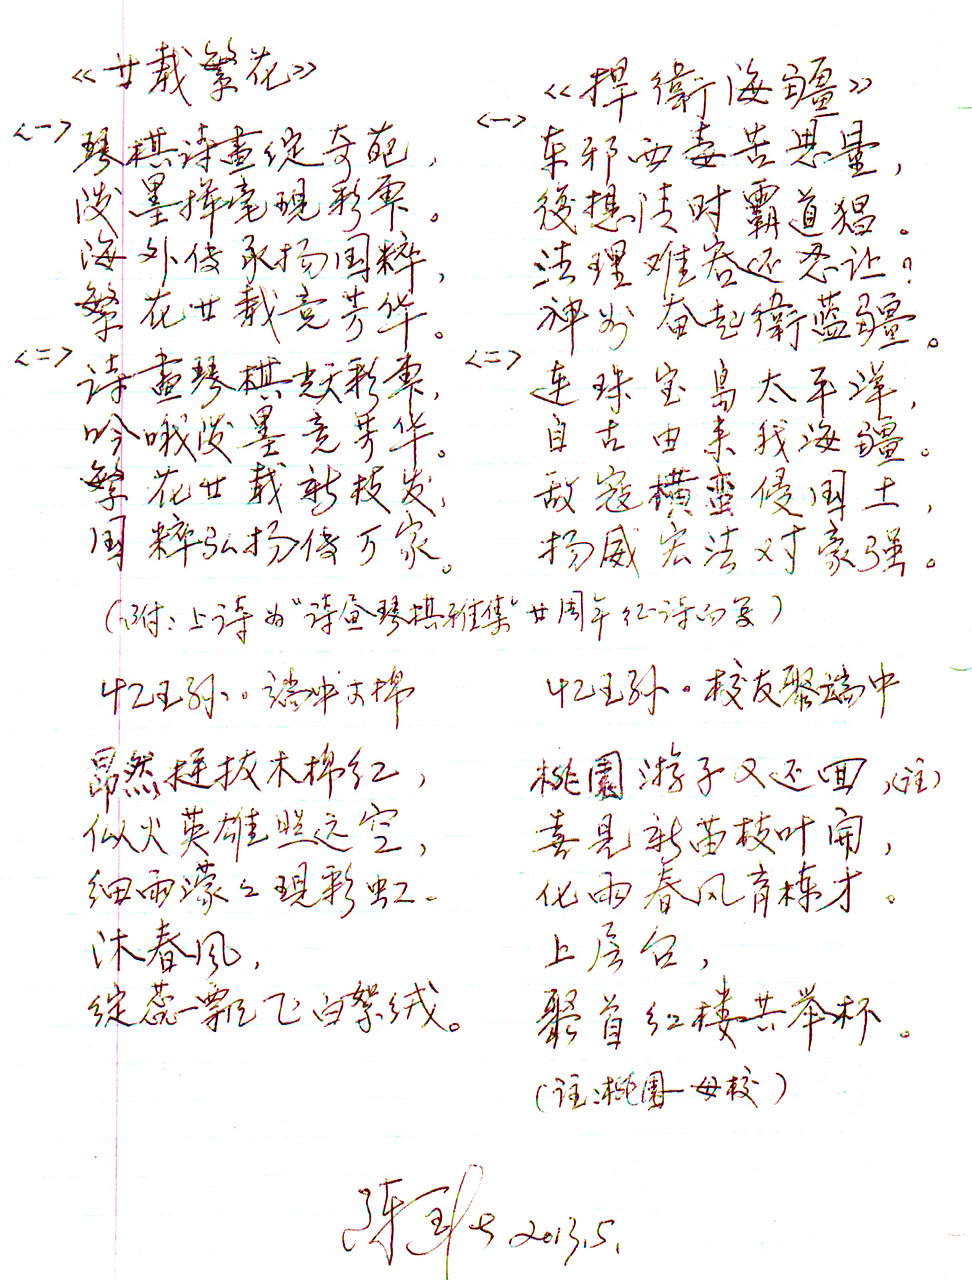 《廿載繁花》
<一>
琴棋诗畫绽奇葩，
泼墨揮毫現彩霞。
海外传承扬国粹，
繁花廿載竞芳华。
<二>
诗畫琴棋兢彩霞，
吟哦泼墨竞芳华。
繁花廿載新枝发，
国粹弘扬传万家。
《捍衛海疆》
<一>
东邪西毒苦思量，
後想清时霸道猖。
法理难容还忍让？
神州奋起衛蓝疆。
<二>
连珠宝島太平洋，
自古由来我海疆。
敌寇横蛮侵国土，
扬威宏法对豪强。
(附：上诗为"诗畫琴棋雅集"廿周年红诗而复)
忆王孙。端中木棉
昂然挺拔木棉红，
似火英雄照远空，
细雨濛々現彩虹。
沐春風，
绽蕊飘飞白絮绒。
忆王孙。校友聚端中
桃園游子又还回，(註)
喜見新苗枝叶開，
化雨春风育栋才。
上层台，
聚首红楼共举杯。
(註：桃園—母校)
陈 2013.5.